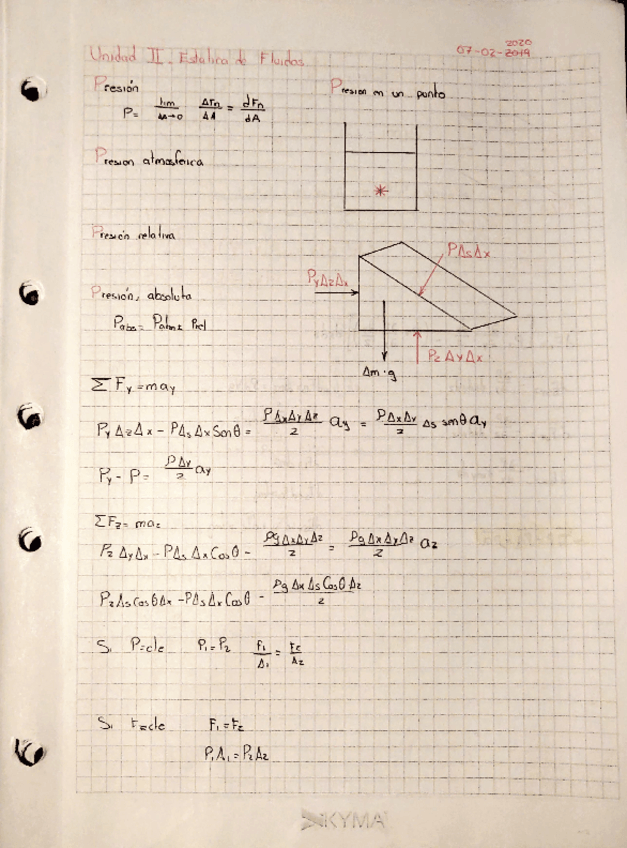 2020
07-02-2019
Unidad II. Estática de Fluidos
Presión
P= lim ΔA→0 ΔFn/ΔA = dFn/dA
Presion en un punto
Presion atmosferica
Presión relativa
PΔsΔx
PyΔzΔx
Presión absoluta
Pabs= Patm± Prel
Pz ΔyΔx
Δm·g
ΣFy=may
Py ΔzΔx - PΔsΔxSenθ= ρΔxΔyΔz/2 ay = ρΔxΔy/2 Δs senθ ay
Py - P= ρΔy/2 ay
ΣFz= maz
Pz ΔyΔx - PΔsΔxCosθ - ρgΔxΔyΔz/2 = ρgΔxΔyΔz/2 az
PzΔscosθΔx - PΔsΔxCosθ - ρgΔxΔsCosθΔz/2
Si P=cte P1=P2 F1/A1 = F2/A2
Si F=cte F1=F2
P1A1=P2A2
KYMA